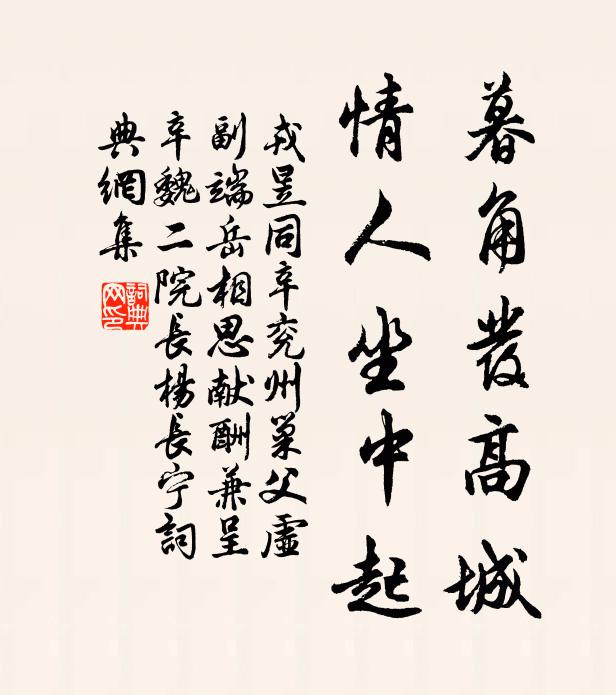 暮角發高城
情人坐中起
戎昱同辛兖州巢父虛
副端岳相思献酬兼呈
辛魏二院長楊長宁詞
典網集
詞典
网印